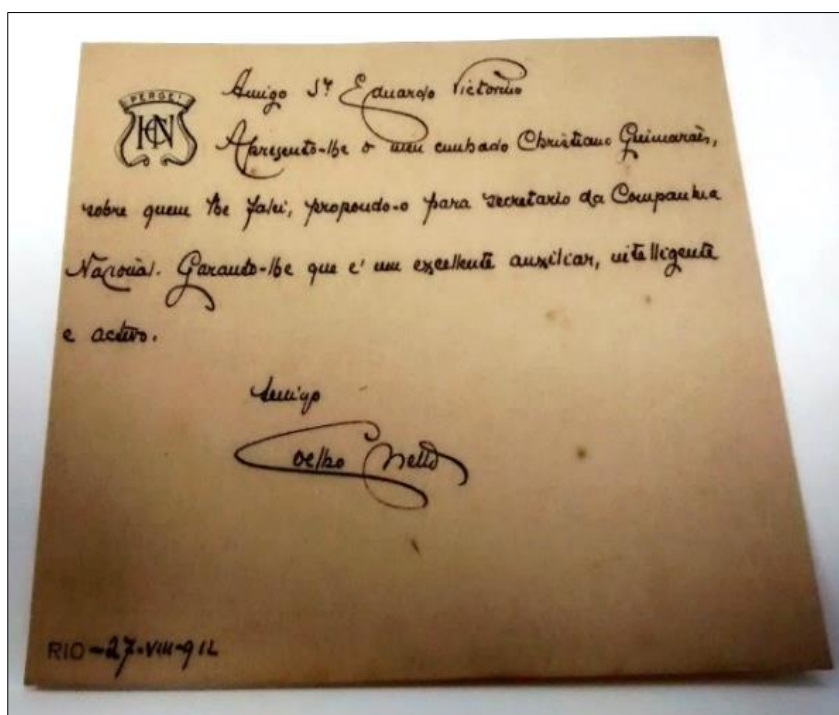 PERGE!
HCN
Amigo Sr Eduardo Victorino
Apresento-lhe o meu cunhado Christiano Guimarães,
sobre quem lhe falei, propondo-o para secretario da Companhia
Nacional. Garanto-lhe que é um excellente auxiliar, intelligente
e activo.
Amigo
Coelho Netto
RIO-27-VIII-912